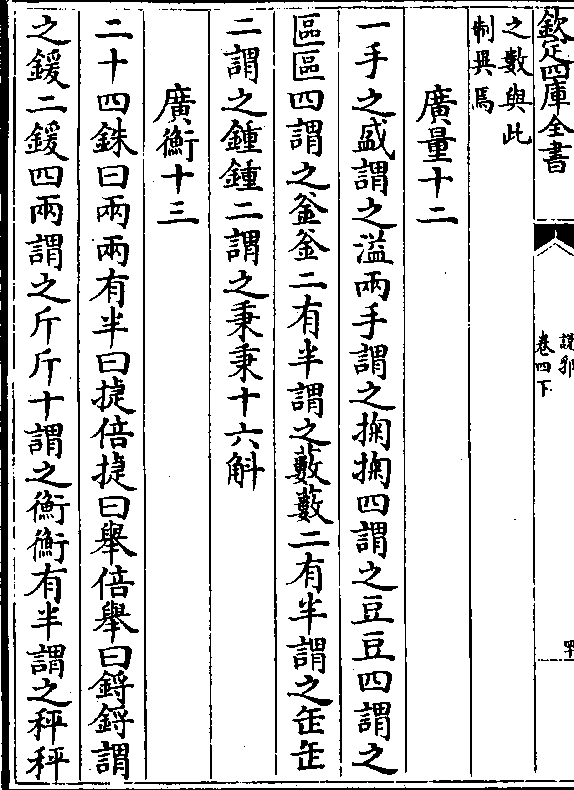 欽定四庫全書
卷四下
之數與此
制異焉
廣量十二
一手之盛謂之溢兩手謂之掬掬四謂之豆豆四謂之
區區四謂之釜釜二有半謂之藪藪二有半謂之缶缶
二謂之鍾鍾二謂之秉秉十六斛
廣衡十三
二十四銖曰兩兩有半曰捷倍捷曰舉倍舉曰鋝鋝謂
之鍰二鍰四兩謂之斤斤十謂之衡衡有半謂之秤秤